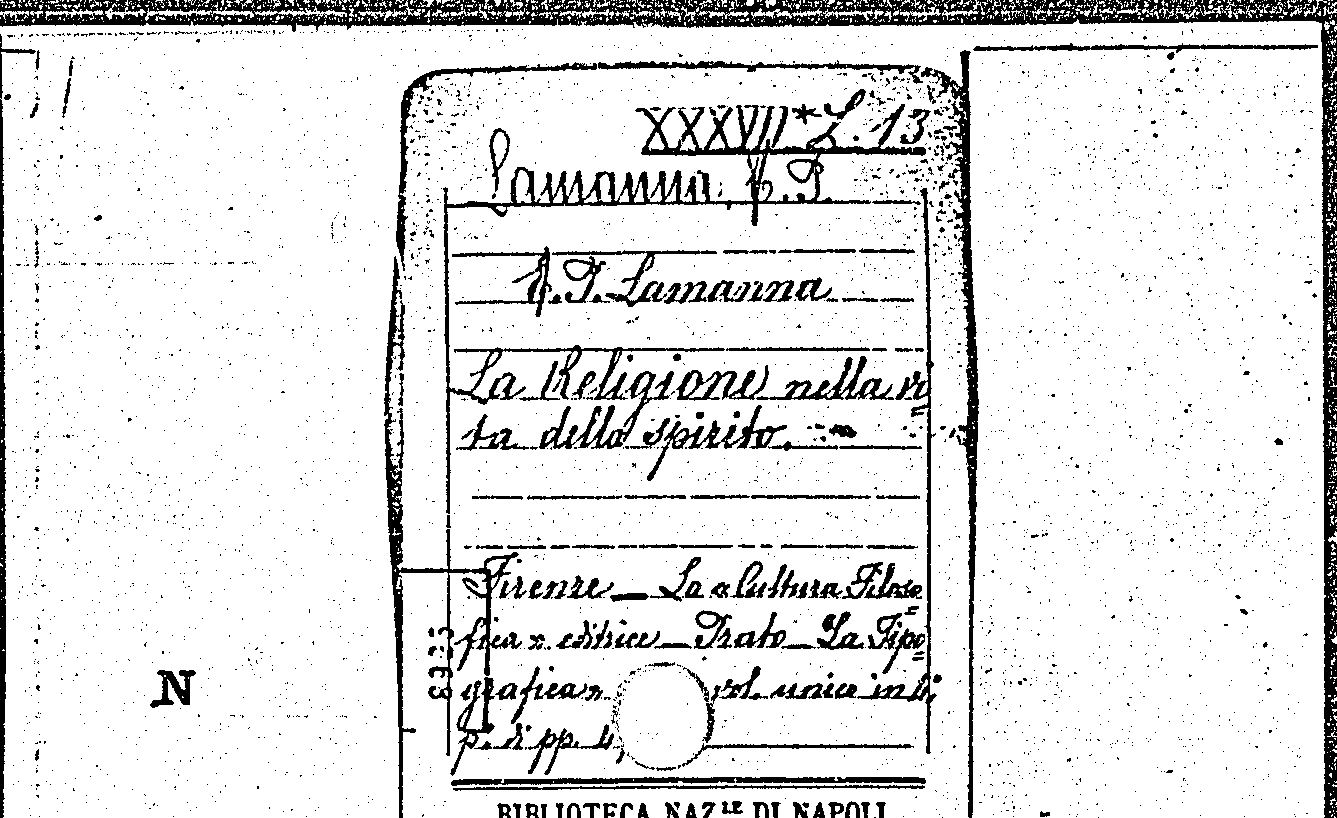 XXXVII * L. 13
Lamanna, E. P.
E. P. Lamanna
La Religione nella vi
ta dello spirito.
Firenze — La « Cultura Filoso
fica » editrice — Prato — La Tipo
grafica » vol. unico in
p. di pp. 4
N
BIBLIOTECA NAZLE DI NAPOLI